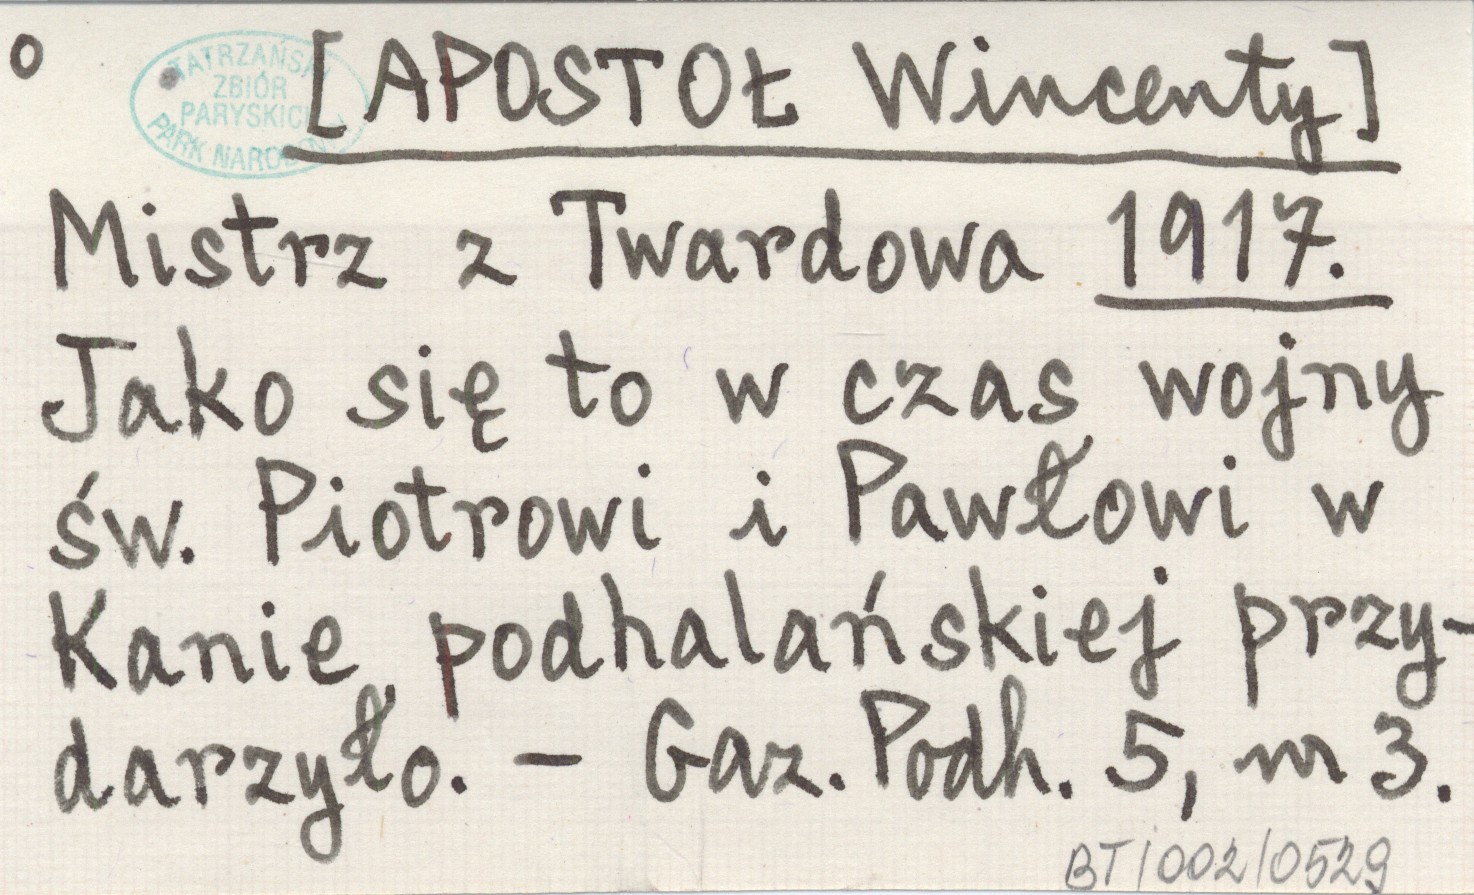 o [APOSTOŁ Wincenty]
TATRZAŃSKI
ZBIÓR
PARYSKICH
PARK NARODOWY
Mistrz z Twardowa 1917.
Jako się to w czas wojny
św. Piotrowi i Pawłowi w
Kanie podhalańskiej przy-
darzyło. – Gaz. Podh. 5, nr 3.
BT/002/0529